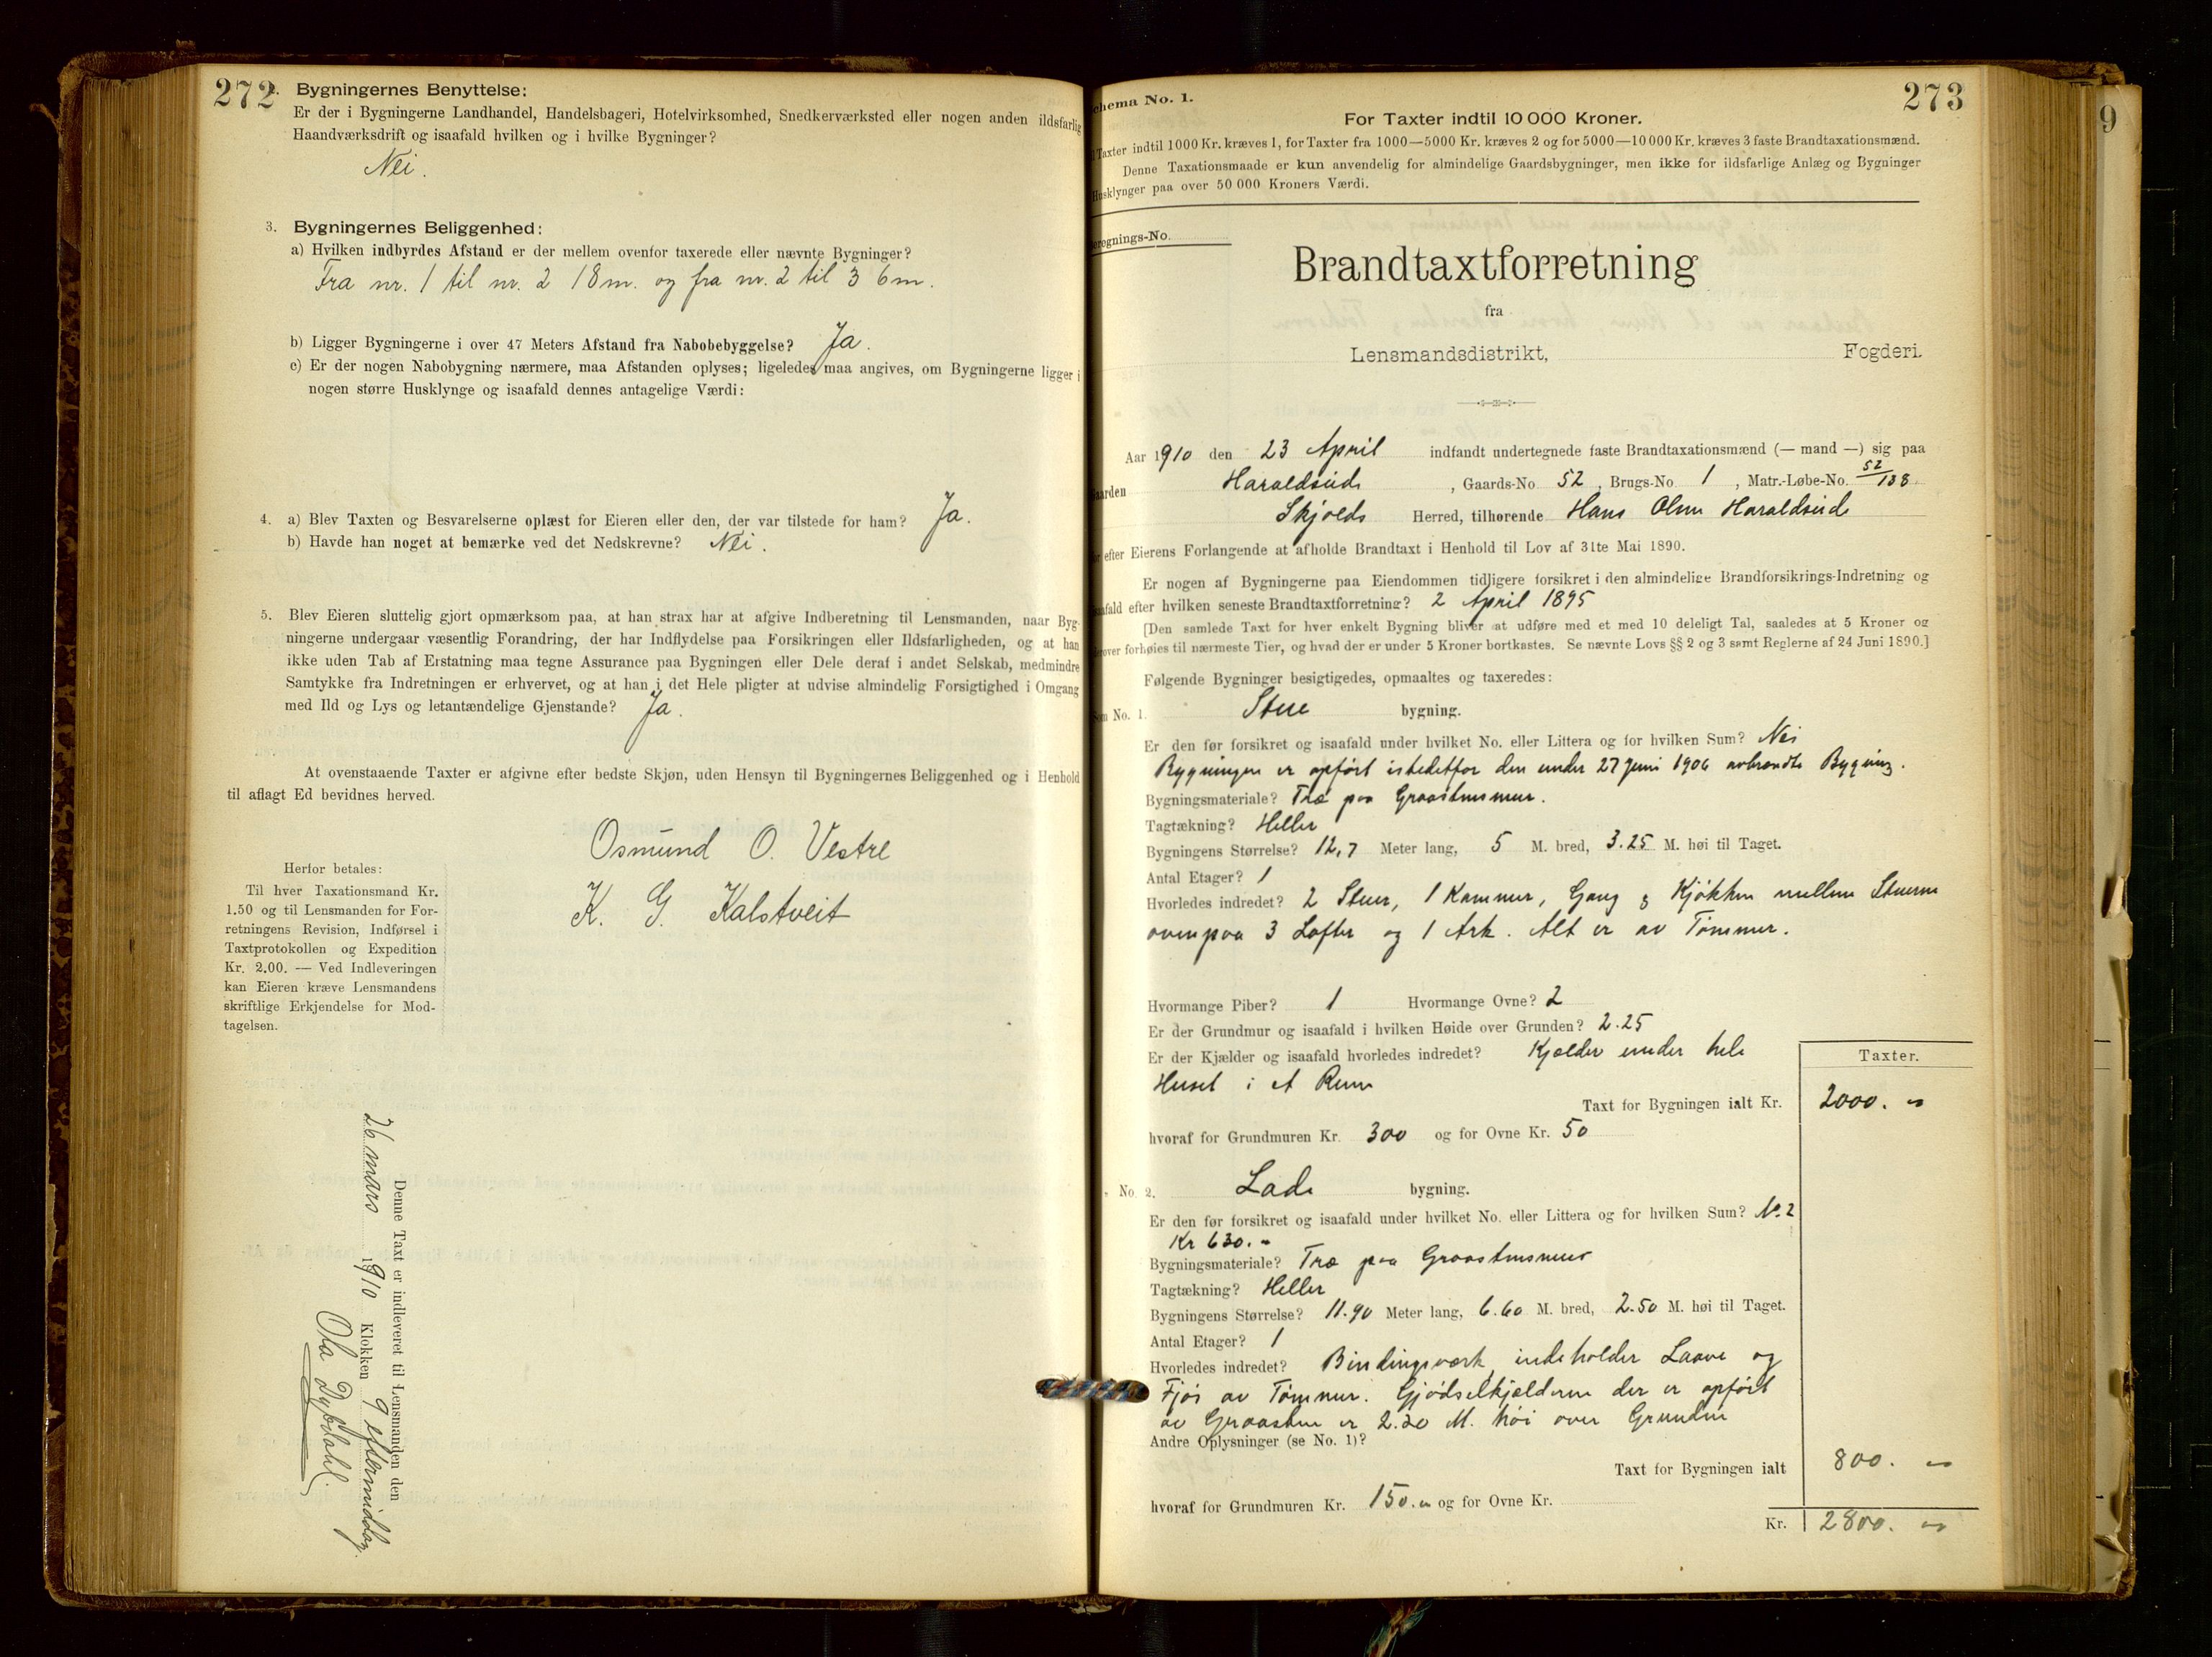 272
2. Bygningernes Benyttelse:
Er der i Bygningerne Landhandel, Handelsbageri, Hotelvirksomhed, Snedkerværksted eller nogen anden ildsfarlig
Haandværksdrift og isaafald hvilken og i hvilke Bygninger?
Nei.
3. Bygningernes Beliggenhed:
a) Hvilken indbyrdes Afstand er der mellem ovenfor taxerede eller nævnte Bygninger?
Fra nr. 1 til nr. 2 18 m. og fra nr. 2 til 3 6 m.
b) Ligger Bygningerne i over 47 Meters Afstand fra Nabobebyggelse? Ja.
c) Er der nogen Nabobygning nærmere, maa Afstanden oplyses; ligeledes maa angives, om Bygningerne ligger i
nogen større Husklynge og isaafald dennes antagelige Værdi:
4. a) Blev Taxten og Besvarelserne oplæst for Eieren eller den, der var tilstede for ham? Ja.
b) Havde han noget at bemærke ved det Nedskrevne? Nei.
5. Blev Eieren sluttelig gjort opmærksom paa, at han strax har at afgive Indberetning til Lensmanden, naar Byg-
ningerne undergaar væsentlig Forandring, der har Indflydelse paa Forsikringen eller Ildsfarligheden, og at han
ikke uden Tab af Erstatning maa tegne Assurance paa Bygningen eller Dele deraf i andet Selskab, medmindre
Samtykke fra Indretningen er erhvervet, og at han i det Hele pligter at udvise almindelig Forsigtighed i Omgang
med Ild og Lys og letantændelige Gjenstande? Ja.
At ovenstaaende Taxter er afgivne efter bedste Skjøn, uden Hensyn til Bygningernes Beliggenhed og i Henhold
til aflagt Ed bevidnes herved.
Osmund O. Vestre
K. G. Kalstveit
Herfor betales:
Til hver Taxationsmand Kr.
1.50 og til Lensmanden for For-
retningens Revision, Indførsel i
Taxtprotokollen og Expedition
Kr. 2.00. — Ved Indleveringen
kan Eieren kræve Lensmandens
skriftlige Erkjendelse for Mod-
tagelsen.
Denne Taxt er indleveret til Lensmanden den
26 mars 1910 Klokken 9 eftermiddag.
Ola Dybdahl
273
Schema No. 1.
For Taxter indtil 10 000 Kroner.
Taxter indtil 1000 Kr. kræves 1, for Taxter fra 1000—5000 Kr. kræves 2 og for 5000—10 000 Kr. kræves 3 faste Brandtaxationsmænd.
Denne Taxationsmaade er kun anvendelig for almindelige Gaardsbygninger, men ikke for ildsfarlige Anlæg og Bygninger
Husklynger paa over 50 000 Kroners Værdi.
Beregnings-No.
Brandtaxtforretning
fra
Lensmandsdistrikt, Fogderi.
Aar 1910 den 23 April indfandt undertegnede faste Brandtaxationsmænd (— mand —) sig paa
Gaarden Haraldseide, Gaards-No 52, Brugs-No 1, Matr.-Løbe-No. 52/138
Skjolds Herred, tilhørende Hans Olsen Haraldseide
for efter Eierens Forlangende at afholde Brandtaxt i Henhold til Lov af 31te Mai 1890.
Er nogen af Bygningerne paa Eiendommen tidligere forsikret i den almindelige Brandforsikrings-Indretning og
isaafald efter hvilken seneste Brandtaxtforretning? 2 April 1895
[Den samlede Taxt for hver enkelt Bygning bliver at udføre med et med 10 deleligt Tal, saaledes at 5 Kroner og
derover forhøies til nærmeste Tier, og hvad der er under 5 Kroner bortkastes. Se nævnte Lovs §§ 2 og 3 samt Reglerne af 24 Juni 1890.]
Følgende Bygninger besigtigedes, opmaaltes og taxeredes:
Som No. 1. Stue bygning.
Er den før forsikret og isaafald under hvilket No. eller Littera og for hvilken Sum? Nei
Bygningen er opført istedetfor den under 27 juni 1906 avbrændte Bygning.
Bygningsmateriale? Træ paa Graastensmur.
Tagtækning? Heller
Bygningens Størrelse? 12,7 Meter lang, 5 M. bred, 3.25 M. høi til Taget.
Antal Etager? 1
Hvorledes indredet? 2 Stuer, 1 Kammer, Gang & Kjøkken mellem Stuerne
ovenpaa 3 Lofter og 1 Ark. Alt er av Tømmer.
Hvormange Piber? 1 Hvormange Ovne? 2
Er der Grundmur og isaafald i hvilken Høide over Grunden? 2.25
Er der Kjælder og isaafald hvorledes indredet? Kjælder under hele
Huset i et Rum
Taxter.
Taxt for Bygningen ialt Kr. 2000. "
hvoraf for Grundmuren Kr. 300 og for Ovne Kr. 50
" No. 2. Lade bygning.
Er den før forsikret og isaafald under hvilket No. eller Littera og for hvilken Sum? No. 2
Kr 630. "
Bygningsmateriale? Træ paa Graastensmur
Tagtækning? Heller
Bygningens Størrelse? 11.90 Meter lang, 6.60 M. bred, 2.50 M. høi til Taget.
Antal Etager? 1
Hvorledes indredet? Bindingsværk, indeholder Laave og
Fjøs av Tømmer. Gjødselkjælderen der er opført
av Graasten er 2.20 M. høi over Grunden
Andre Oplysninger (se No. 1)?
Taxt for Bygningen ialt 800. "
hvoraf for Grundmuren Kr. 150. " og for Ovne Kr.
Kr. 2800. "
9